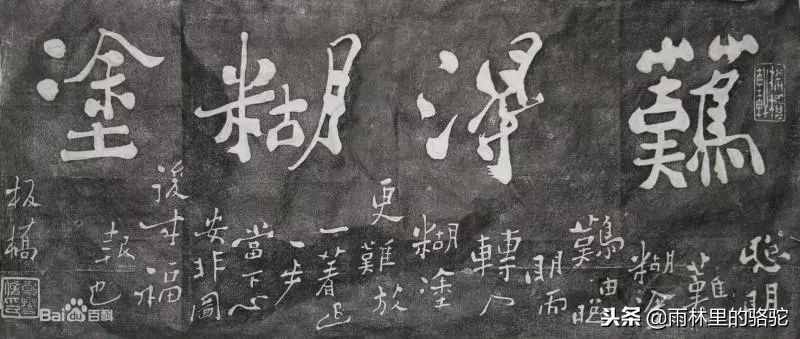 難得糊塗
聰明
難
糊塗
難由聰
明而
轉入
糊塗
更難放
一著退
一步
當下心
安非圖
後來福
報也
板橋
Bai du 百科
头条 @雨林里的骆驼